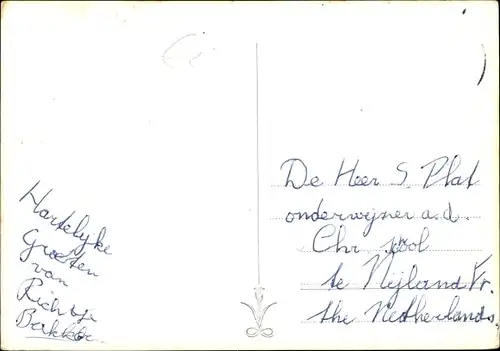 Hartelijke
Groeten
van
Richtje
Bakker.
De Heer S Plat
onderwijzer a.d.
Chr. school
te Nijland Fr.
the Netherlands.